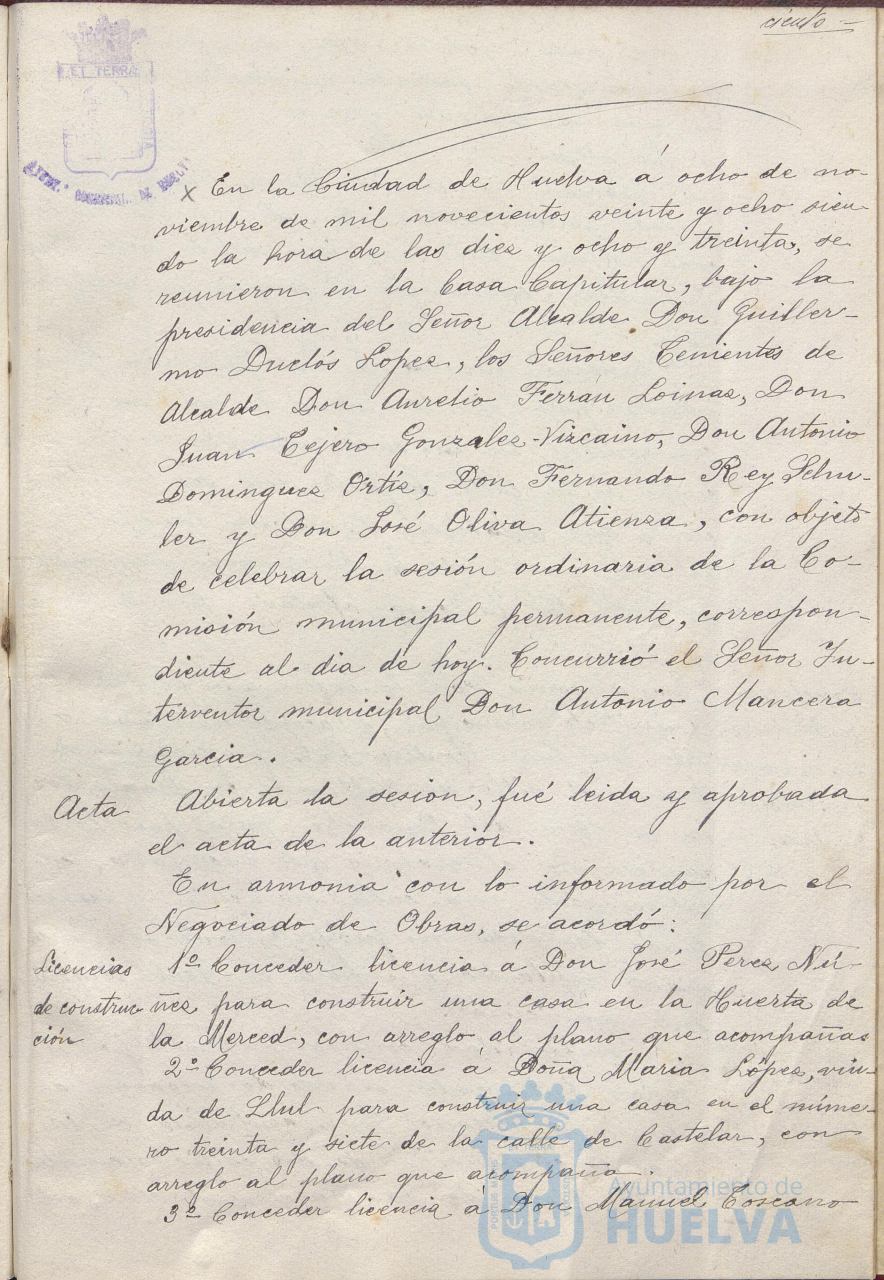 ciento =
ET TERRÆ
En la Ciudad de Huelva á ocho de no-
viembre de mil novecientos veinte y ocho sien-
do la hora de las diez y ocho y treinta, se
reunieron en la Casa Capitular, bajo la
presidencia del Señor Alcalde Don Guiller-
mo Duclós Lopez, los Señores Tenientes de
Alcalde Don Aurelio Ferrán Loinaz, Don
Juan Tejero Gonzalez-Vizcaino, Don Antonio
Dominguez Ortíz, Don Fernando Rey Schu-
ler y Don José Oliva Atienza, con objeto
de celebrar la sesión ordinaria de la Co-
misión municipal permanente, correspon-
diente al dia de hoy. Concurrió el Señor In-
terventor municipal Don Antonio Mancera
Garcia.
Acta
Abierta la sesion, fué leida y aprobada
el acta de la anterior.
En armonia con lo informado por el
Negociado de Obras, se acordó:
Licencias
de construc-
ción
1º Conceder licencia á Don José Perez Nú-
ñez para construir una casa en la Huerta de
la Merced, con arreglo al plano que acompaña.
2º Conceder licencia á Doña Maria López, viu-
da de Llul para construir una casa en el núme-
ro treinta y siete de la calle de Castelar, con
arreglo al plano que acompaña.
3º Conceder licencia á Don Manuel Toscano
Ayuntamiento de
HUELVA